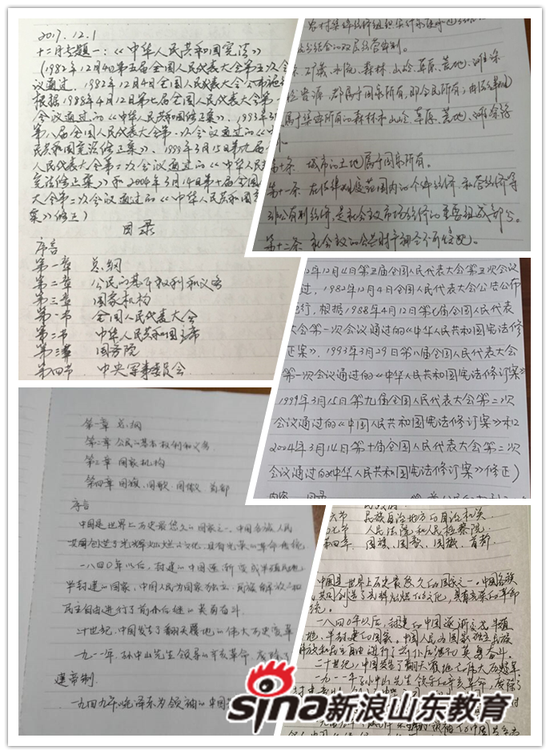 2017.12.1
十二月专题一:《中华人民共和国宪法》
(1982年12月4日第五届全国人民代表大会第五次会
议通过 1982年12月4日全国人民代表大会公告公布施
根据1988年4月12日第七届全国人民代表大会第一
会议通过的《中华人民共和国修正案》、1993年3
第八届全国人民代表大会第一次会议通过的《中
民共和国宪法修正案》、1999年3月15日第九届
人民代表大会第二次会议通过的《中华人民共
宪法修正案》和2004年3月14日第十届全国人
大会第二次会议通过的《中华人民共和国宪
案》修正)
目录
序言
第一章 总纲
第二章 公民的基本权利和义务
第三章 国家机构
第一节 全国人民代表大会
第二节 中华人民共和国主席
第三节 国务院
第四节 中央军事委员会
矿藏、水流、森林、山岭、草原、荒地、滩涂
资源,都属于国家所有,即全民所有;由法律规
属于集体所有的森林和山岭、草原、荒地、滩涂除
第十条 城市的土地属于国家所有。
第十一条 在法律规定范围内的个体经济、私营经济等
非公有制经济,是社会主义市场经济的重要组成部分。
第十二条 社会主义的公共财产神圣不可侵犯。
2年12月4日第五届全国人民代表大会第五次会议
过,1982年12月4日全国人民代表大会公告公布
行,根据1988年4月12日第七届全国人民代表
大会第一次会议通过的《中华人民共和国宪法修
正案》,1993年3月29日第八届全国人民代表大会
第一次会议通过的《中华人民共和国宪法修订案》
1999年3月15日第九届全国人民代表大会第二次
会议通过的《中国人民共和国宪法修订案》和
2004年3月14日第十届全国人民代表大会第二次
会议通过的《中华人民共和国宪法修订案》修正)
第一章 总纲
第二章 公民的基本权利和义务
第三章 国家机构
第四章 国旗、国歌、国徽、首都
序言
中国是世界上历史最悠久的国家之一。中国各族人民
共同创造了光辉灿烂的文化,具有光荣的革命传统
一八四〇年以后,封建的中国逐渐变成半殖民地
半封建的国家。中国人民为国家独立、民族解放和
民主自由进行了前仆后继的英勇奋斗。
二十世纪,中国发生了翻天覆地的伟大历史变革
一九一一年孙中山先生领导的辛亥革命,废除了
建帝制
一九四九年,毛泽东为领袖的中国
民族自治地方的自治机关
人民法院和人民检察院
第四章 国旗、国歌、国徽、首都
中国是世界上历史最悠久的国家之一。中国各族
共同创造了光辉灿烂的文化,具有光荣的革命
一八四〇年以后,封建的中国逐渐变成半殖
地、半封建的国家。中国人民为国家独立、民族
解放和民主自由进行了前仆后继的英勇奋斗。
二十世纪,中国发生了翻天覆地的伟大历史变革。
一九一一年孙中山先生领导的辛亥革命,废除了
sina新浪山东教育